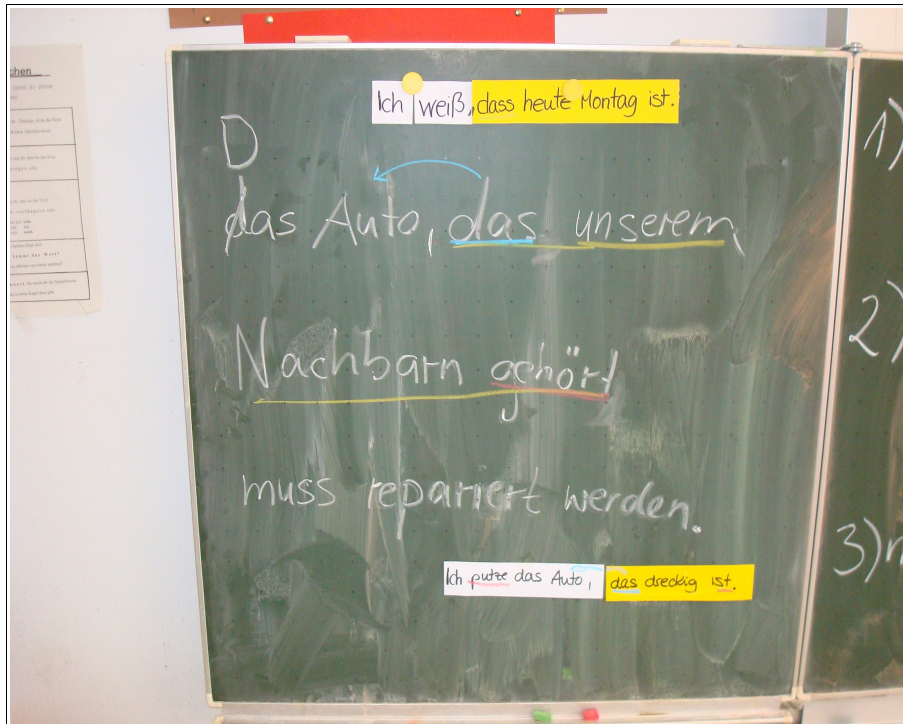 Ich weiß, dass heute Montag ist.
D
das Auto, das unserem
Nachbarn gehört
muss repariert werden.
Ich putze das Auto, das dreckig ist.
1)
2)
3)
chen